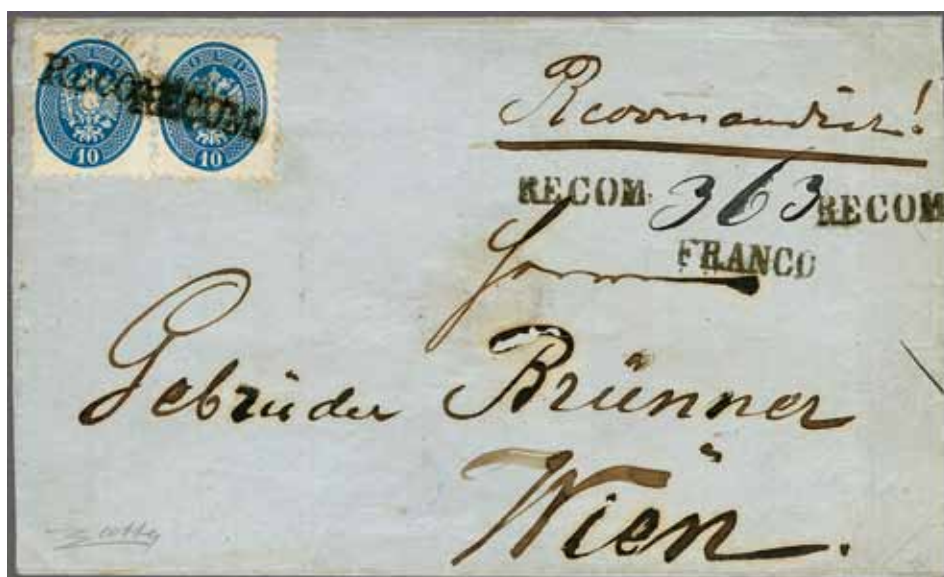 SOLDI SOLDI
RECOM. RECOM.
10 10
Recommandirt!
RECOM. 363 RECOM
FRANCO
Herrn
Gebrüder Brünner
in
Wien.